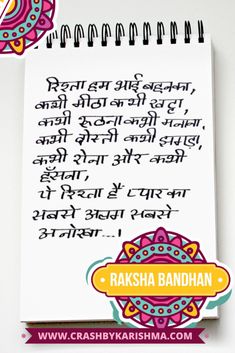 रिश्ता हम भाई बहनका,
कभी मीठा कभी खट्टा,
कभी रूठना कभी मनाना,
कभी दोस्ती कभी झगड़ा,
कभी रोना और कभी
हँसना,
ये रिश्ता है प्यार का
सबसे अलग सबसे
अनोखा...!
RAKSHA BANDHAN
WWW.CRASHBYKARISHMA.COM